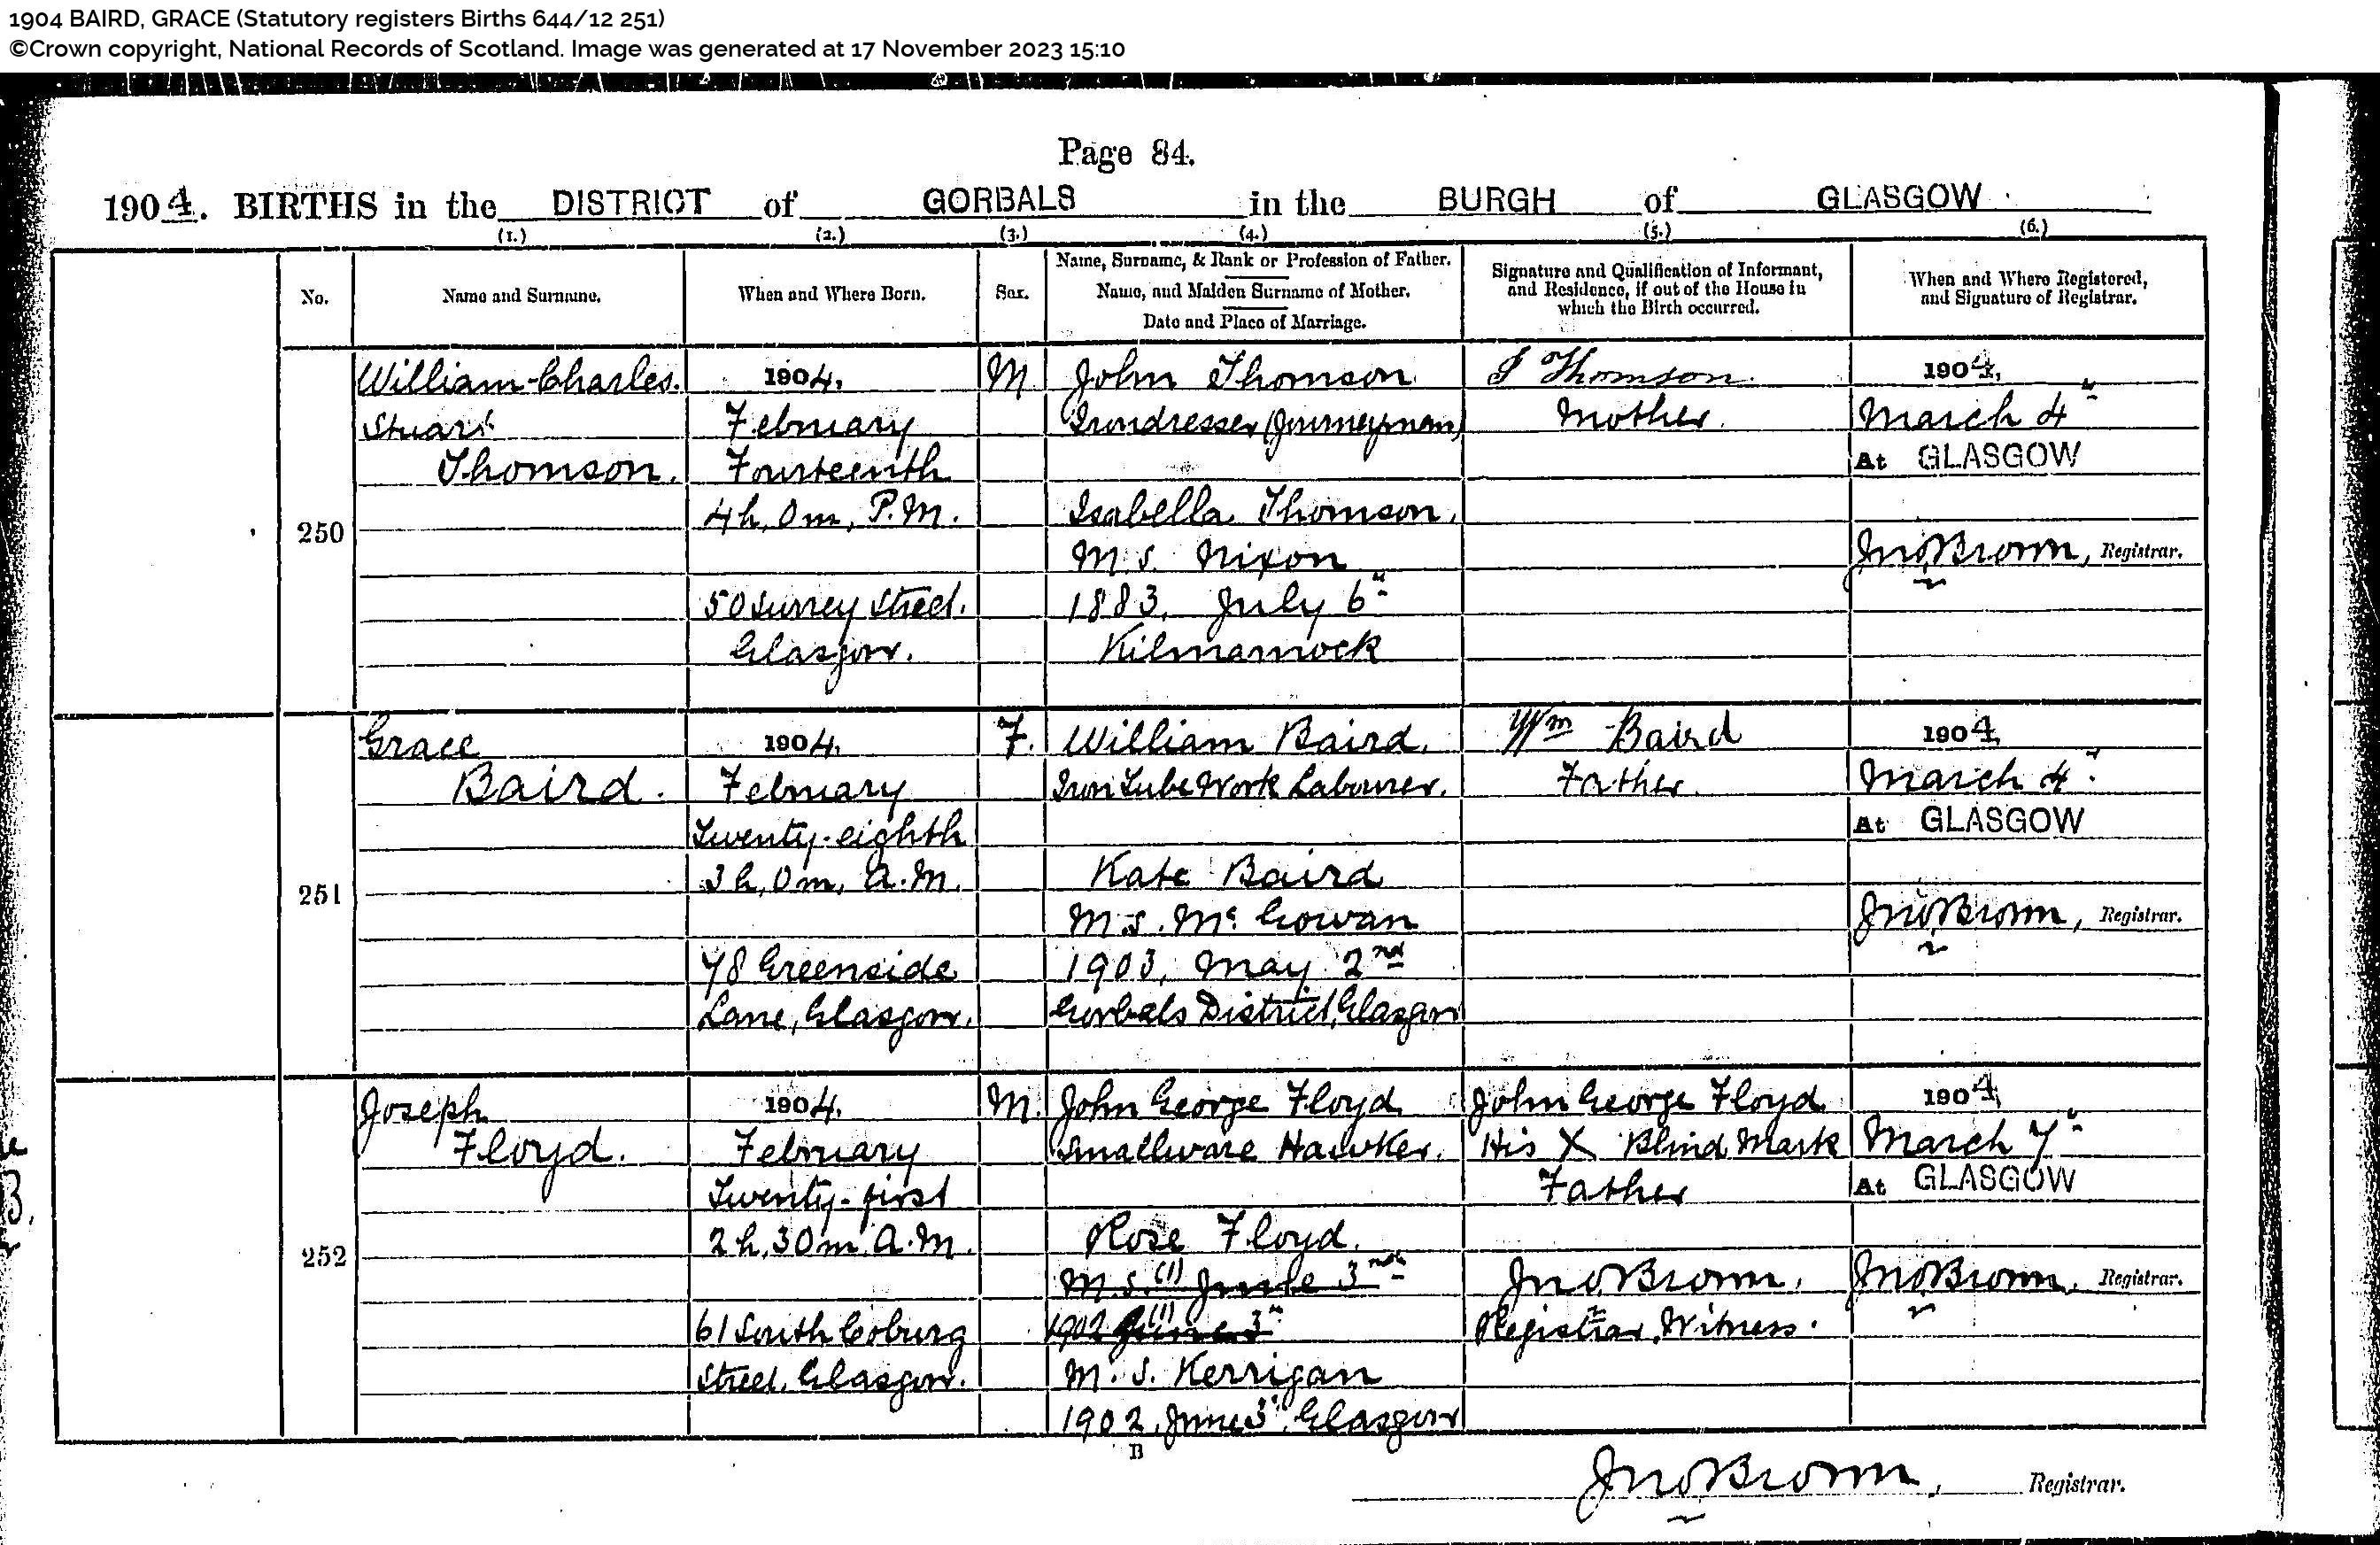 1904 BAIRD, GRACE (Statutory registers Births 644/12 251)
©Crown copyright, National Records of Scotland. Image was generated at 17 November 2023 15:10
Page 84.
1904. BIRTHS in the DISTRICT of GORBALS in the BURGH of GLASGOW
(1.) (2.) (3.) (4.) (5.) (6.)
No.
Name and Surname.
When and Where Born.
Sex.
Name, Surname, & Rank or Profession of Father.
Name, and Maiden Surname of Mother.
Date and Place of Marriage.
Signature and Qualification of Informant,
and Residence, if out of the House in
which the Birth occurred.
When and Where Registered,
and Signature of Registrar.
250
William Charles
Stuart
Thomson.
1904,
February
Fourteenth
4h, 0m, P.M.
50 Surrey Street.
Glasgow.
M
John Thomson
Irondresser (Journeyman)
Isabella Thomson,
M.S. Nixon
1883, July 6"
Kilmarnock
I Thomson.
Mother.
1904,
March 4"
At GLASGOW
Jno. Brown, Registrar.
251
Grace
Baird.
1904,
February
Twenty-eighth
3h, 0m, A.M.
78 Greenside
Lane, Glasgow.
F.
William Baird,
Iron Tube Work Labourer.
Kate Baird
M.S. McGowan
1903, May 2nd
Gorbals District, Glasgow
Wm Baird
Father.
1904,
March 4"
At GLASGOW
Jno. Brown, Registrar.
252
Joseph
Floyd.
1904,
February
Twenty-first
2h, 30m, A.M.
61 South Coburg
Street, Glasgow.
M.
John George Floyd
Smallware Hawker.
Rose Floyd.
M.S. (1) June 3rd
1902 (1) June 3"
M.S. Kerrigan
1902, June 3", Glasgow
John George Floyd
His X Blind Mark
Father
Jno. Brown,
Registrar, Witness.
1904,
March 7"
At GLASGOW
Jno. Brown, Registrar.
B
Jno. Brown, Registrar.